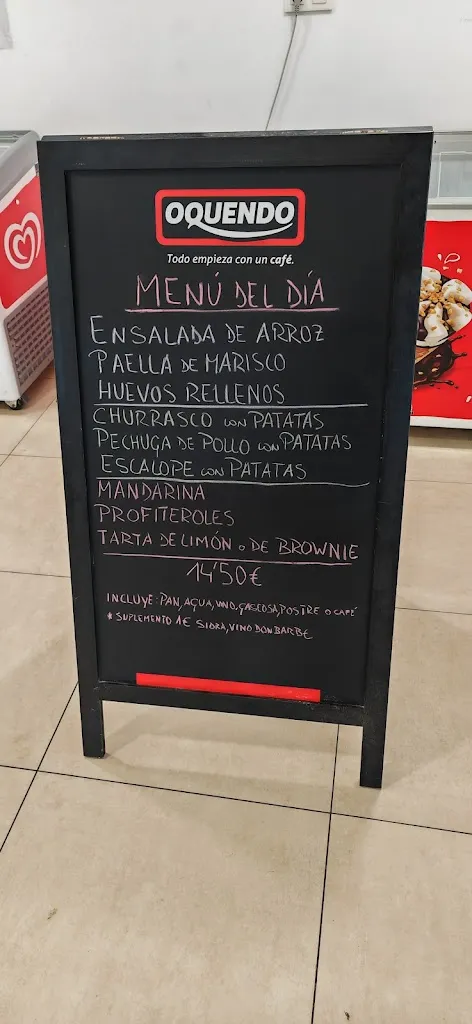 OQUENDO
Todo empieza con un café.
MENÚ DEL DÍA
ENSALADA DE ARROZ
PAELLA DE MARISCO
HUEVOS RELLENOS
CHURRASCO CON PATATAS
PECHUGA DE POLLO CON PATATAS
ESCALOPE CON PATATAS
MANDARINA
PROFITEROLES
TARTA DE LIMÓN O DE BROWNIE
14'50€
INCLUYE: PAN, AGUA, VINO, GASEOSA, POSTRE O CAFÉ
* SUPLEMENTO 1€ SIDRA, VINO DON BARBE